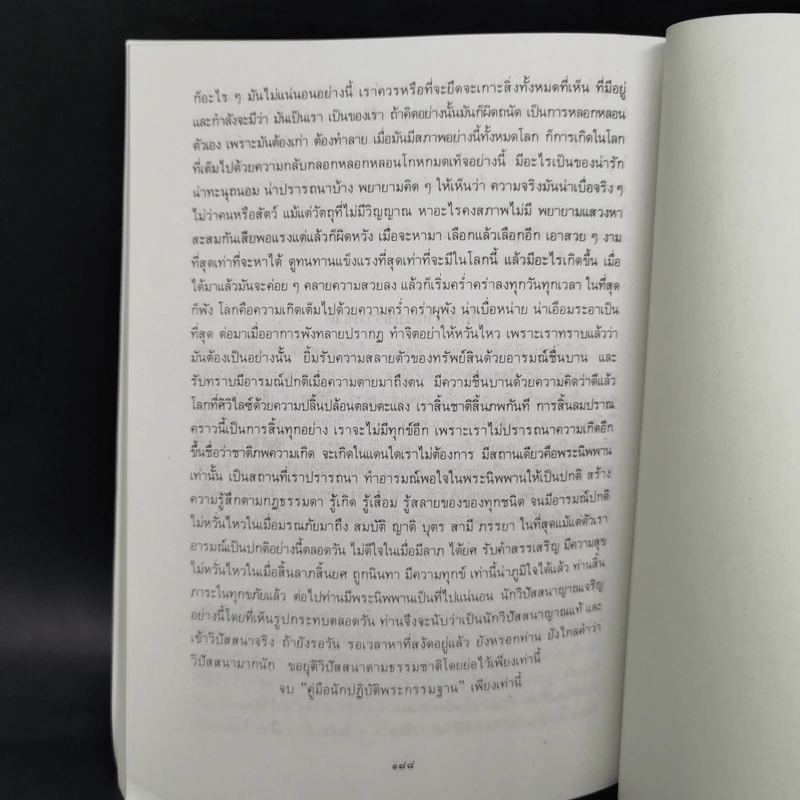 ก็อะไร ๆ มันไม่แน่นอนอย่างนี้ เราควรหรือที่จะยึดจะเกาะสิ่งทั้งหมดที่เห็น ที่มีอยู่
และกำลังจะมีว่า มันเป็นเรา เป็นของเรา ถ้าคิดอย่างนั้นมันก็ผิดถนัด เป็นการหลอกหลอน
ตัวเอง เพราะมันต้องเก่า ต้องทำลาย เมื่อมันมีสภาพอย่างนี้ทั้งหมดโลก ก็การเกิดในโลก
ที่เต็มไปด้วยความกลับกลอกหลอกหลอนโกหกมดเท็จอย่างนี้ มีอะไรเป็นของน่ารัก
น่าทะนุถนอม น่าปรารถนาบ้าง พยายามคิด ๆ ให้เห็นว่า ความจริงมันน่าเบื่อจริง ๆ
ไม่ว่าคนหรือสัตว์ แม้แต่วัตถุที่ไม่มีวิญญาณ หาอะไรคงสภาพไม่มี พยายามแสวงหา
สะสมกันเสียพอแรงแต่แล้วก็ผิดหวัง เมื่อจะหามา เลือกแล้วเลือกอีก เอาสวย ๆ งาม
ที่สุดเท่าที่จะหาได้ ดูทนทานแข็งแรงที่สุดเท่าที่จะมีในโลกนี้ แล้วมีอะไรเกิดขึ้น เมื่อ
ได้มาแล้วมันจะค่อย ๆ คลายความสวยลง แล้วก็เริ่มคร่ำคร่าลงทุกวันทุกเวลา ในที่สุด
ก็พัง โลกคือความเกิดเต็มไปด้วยความคร่ำคร่าผุพัง น่าเบื่อหน่าย น่าเอือมระอาเป็น
ที่สุด ต่อมาเมื่ออาการพังทลายปรากฏ ทำจิตอย่าให้หวั่นไหว เพราะเราทราบแล้วว่า
มันต้องเป็นอย่างนั้น ยิ้มรับความสลายตัวของทรัพย์สินด้วยอารมณ์ชื่นบาน และ
รับทราบมีอารมณ์ปกติเมื่อความตายมาถึงตน มีความชื่นบานด้วยความคิดว่าดีแล้ว
โลกที่ศิวิไลซ์ด้วยความปลิ้นปล้อนตลบตะแลง เราสิ้นชาติสิ้นภพกันที การสิ้นลมปราณ
คราวนี้เป็นการสิ้นทุกอย่าง เราจะไม่มีทุกข์อีก เพราะเราไม่ปรารถนาความเกิดอีก
ขึ้นชื่อว่าชาติภพความเกิด จะเกิดในแดนใดเราไม่ต้องการ มีสถานเดียวคือพระนิพพาน
เท่านั้น เป็นสถานที่เราปรารถนา ทำอารมณ์พอใจในพระนิพพานให้เป็นปกติ สร้าง
ความรู้สึกตามกฎธรรมดา รู้เกิด รู้เสื่อม รู้สลายของของทุกชนิด จนมีอารมณ์ปกติ
ไม่หวั่นไหวในเมื่อมรณภัยมาถึง สมบัติ ญาติ บุตร สามี ภรรยา ในที่สุดแม้แต่ตัวเรา
อารมณ์เป็นปกติอย่างนี้ตลอดวัน ไม่ดีใจในเมื่อมีลาภ ได้ยศ รับคำสรรเสริญ มีความสุข
ไม่หวั่นไหวในเมื่อสิ้นลาภสิ้นยศ ถูกนินทา มีความทุกข์ เท่านี้น่าภูมิใจได้แล้ว ท่านสิ้น
ภาระในทุกขภัยแล้ว ต่อไปท่านมีพระนิพพานเป็นที่ไปแน่นอน นักวิปัสสนาญาณเจริญ
อย่างนี้โดยที่เห็นรูปกระทบตลอดวัน ท่านจึงจะนับว่าเป็นนักวิปัสสนาญาณแท้ และ
เข้าวิปัสสนาจริง ถ้ายังรอวัน รอเวลาหาที่สงัดอยู่แล้ว ยังหรอกท่าน ยังไกลคำว่า
วิปัสสนามากนัก ขอยุติวิปัสสนาตามธรรมชาติโดยย่อไว้เพียงเท่านี้
จบ "คู่มือนักปฏิบัติพระกรรมฐาน" เพียงเท่านี้
๑๘๘